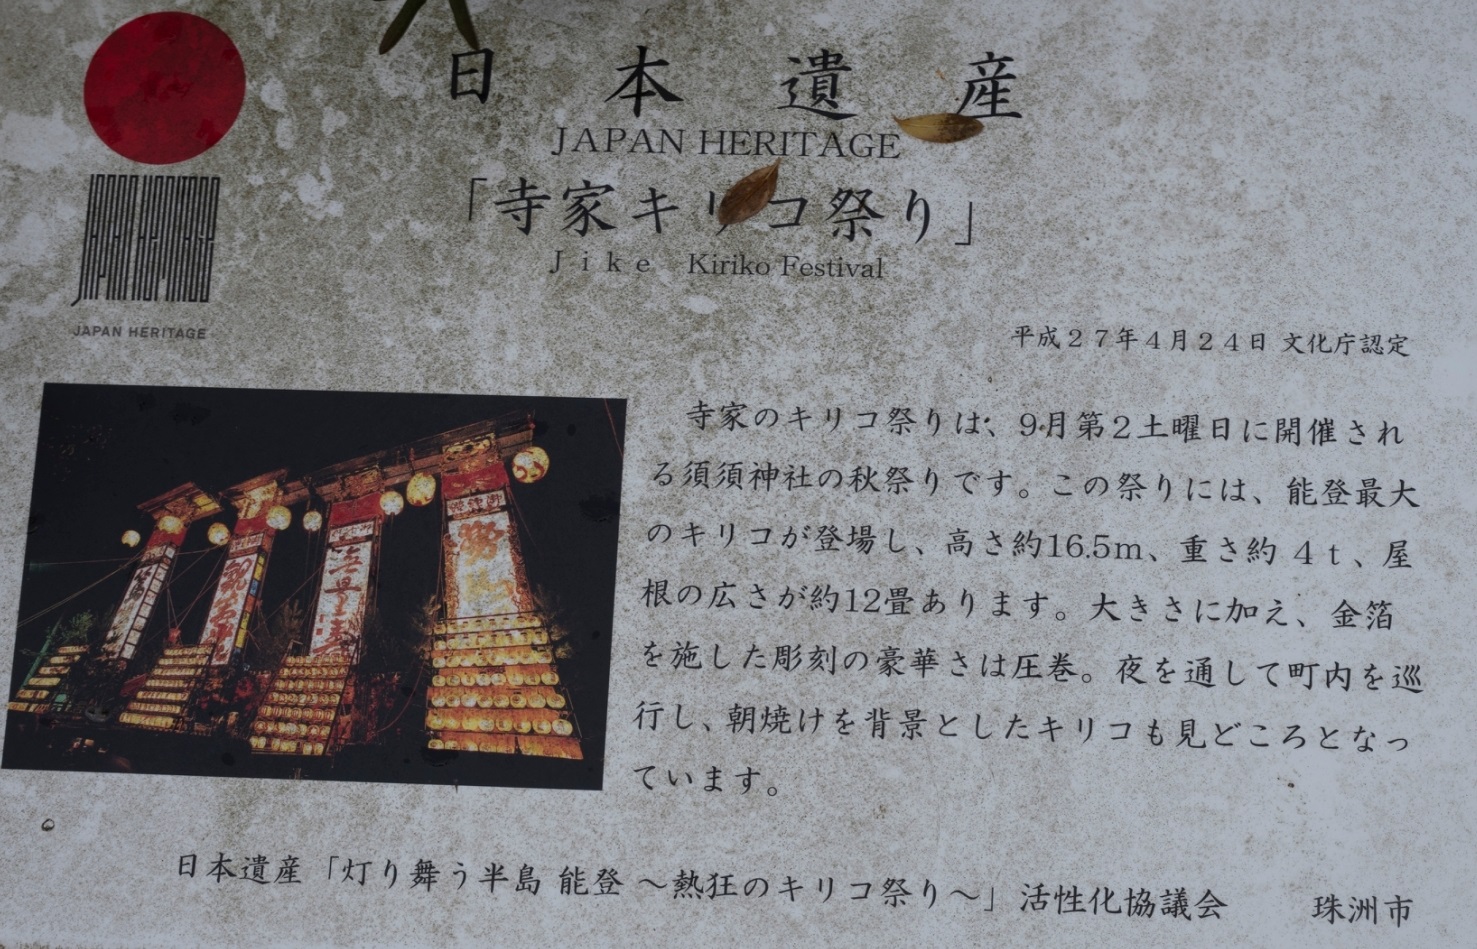 日本遺産
JAPAN HERITAGE
「寺家キリコ祭り」
Jike Kiriko Festival
JAPAN HERITAGE
平成27年4月24日 文化庁認定
寺家のキリコ祭りは、9月第2土曜日に開催され
る須須神社の秋祭りです。この祭りには、能登最大
のキリコが登場し、高さ約16.5m、重さ約 4t、屋
根の広さが約12畳あります。大きさに加え、金箔
を施した彫刻の豪華さは圧巻。夜を通して町内を巡
行し、朝焼けを背景としたキリコも見どころとなっ
ています。
日本遺産「灯り舞う半島 能登 ～熱狂のキリコ祭り～」活性化協議会 珠洲市